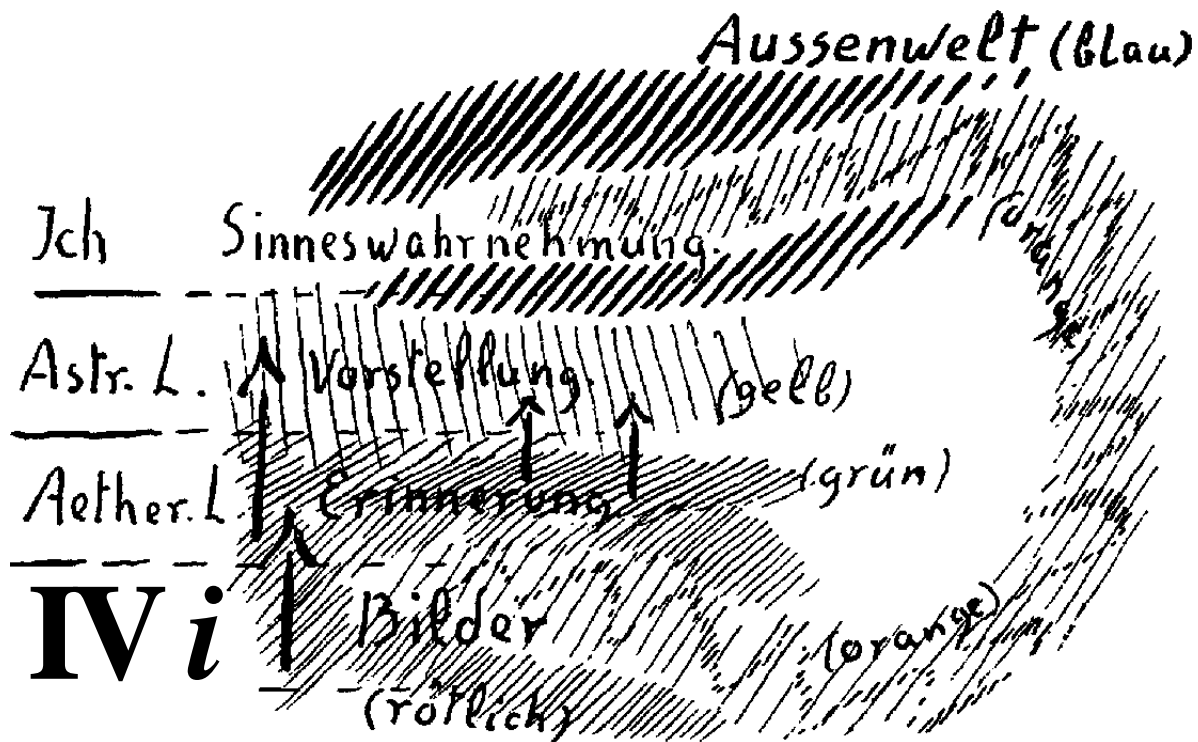 Aussenwelt (blau)
Ich Sinneswahrnehmung.
(orange)
Astr. L. Vorstellung.
(gelb)
Aether. L. Erinnerung.
(grün)
IV i Bilder
(orange)
(rötlich)